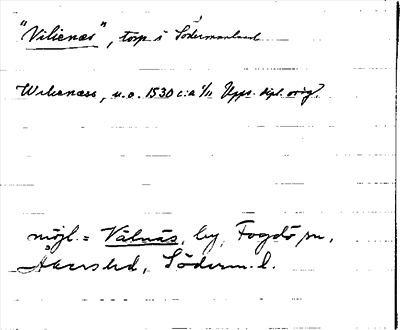 "Vilienæs", torp i Södermanland
Wilienæss, u.o. 1530 c:a 1/11 Upps. dipl. orig.
möjl. = Valnäs, by, Fogdö sn,
Åkers hd, Söderm. l.